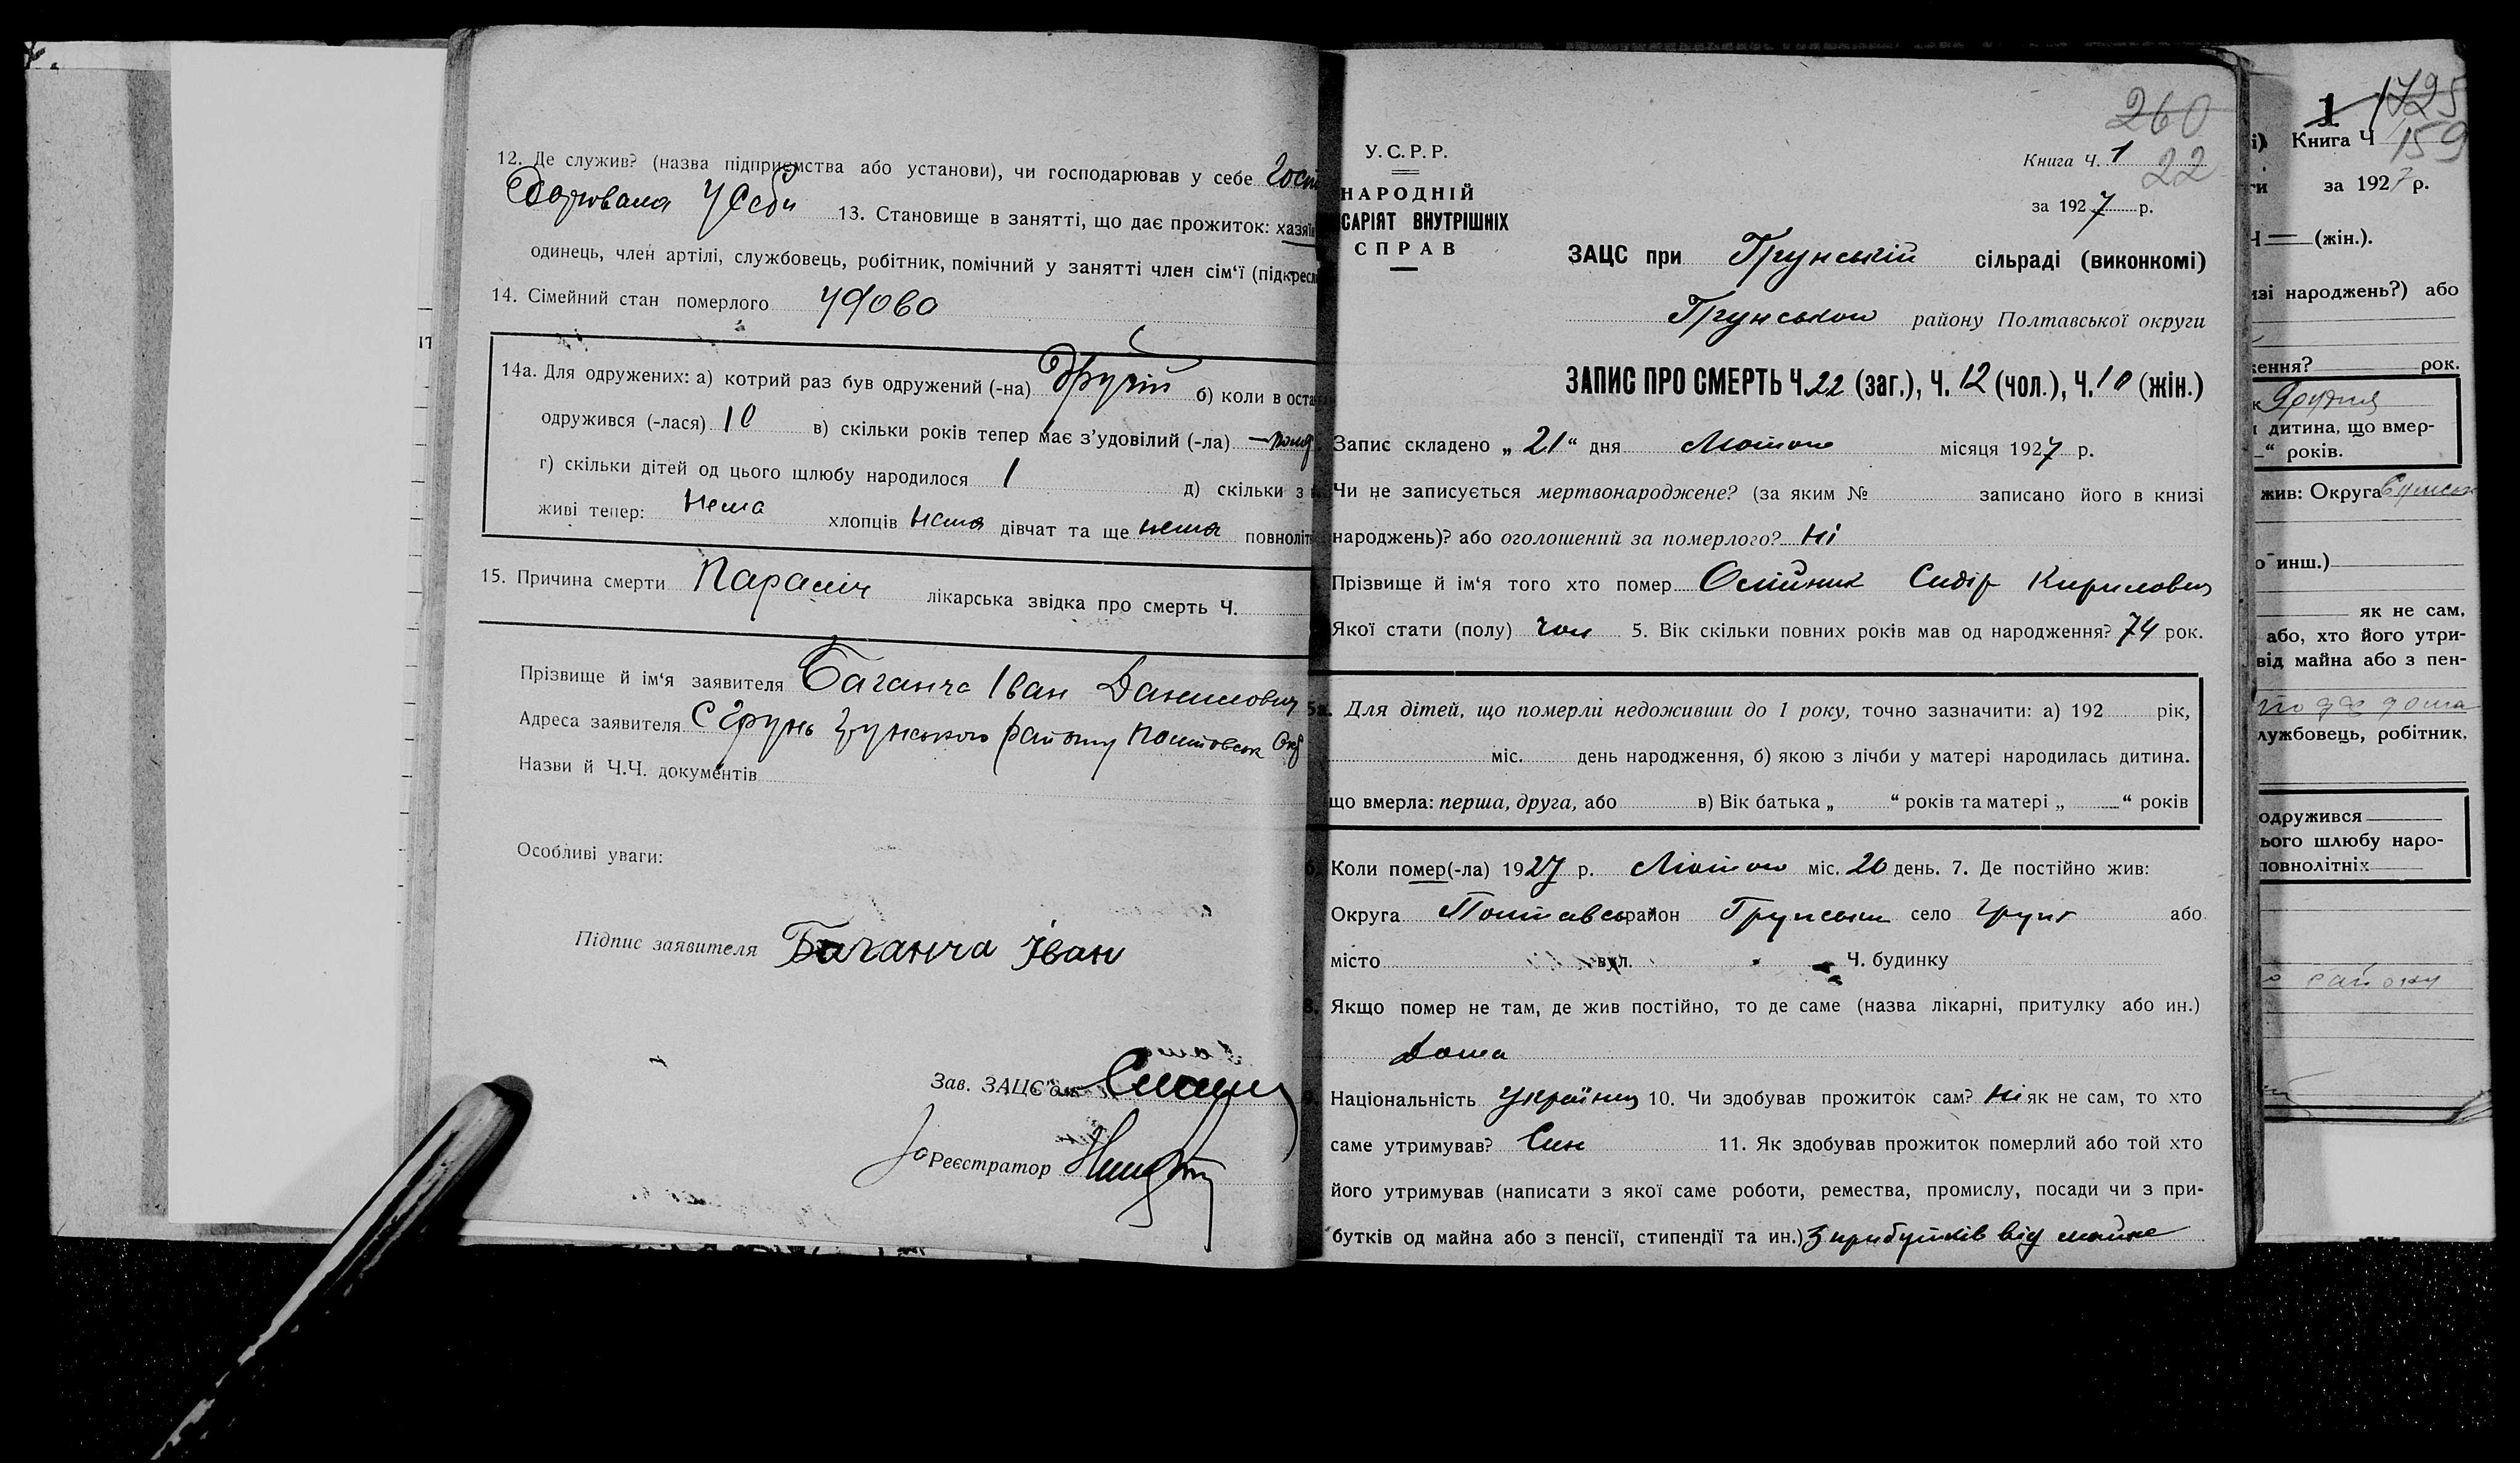 12. Де служив? (назва підприємства або установи), чи господарював у себе Госп
одарювала у себе 13. Становище в занятті, що дає прожиток: хазяїн
одинець, член артілі, службовець, робітник, помічний у занятті член сім'ї (підкресл
14. Сімейний стан померлого удова
14а. Для одружених: а) котрий раз був одружений (-на) другий б) коли в оста
одружився (-лася) 10 в) скільки років тепер має з'удовілий (-ла)
г) скільки дітей од цього шлюбу народилося 1 д) скільки з
живі тепер: нема хлопців нема дівчат та ще нема повноліт
15. Причина смерти Параліч лікарська звідка про смерть Ч.
Прізвище й ім'я заявителя Баганча Іван Данилович
Адреса заявителя С Грунь Грунського району Полтавськ Окр
Назви й Ч.Ч. документів
Особливі уваги:
Підпис заявителя Баганча Іван
Зав. ЗАЦС'ом
Реєстратор
У.С.Р.Р.
НАРОДНІЙ
САРІЯТ ВНУТРІШНІХ
СПРАВ
260
Книга Ч. 1
22
за 1927 р.
ЗАЦС при Грунській сільраді (виконкомі)
Грунського району Полтавської округи
ЗАПИС ПРО СМЕРТЬ Ч. 22 (заг.), Ч. 12 (чол.), Ч. 10 (жін.)
Запис складено „ 21 “ дня Лютого місяця 1927 р.
Чи не записується мертвонароджене? (за яким № записано його в книзі
народжень)? або оголошений за померлого? Ні
Прізвище й ім'я того хто помер Олійник Сидір Кирилович
Якої стати (полу) чол 5. Вік скільки повних років мав од народження? 74 рок.
5а. Для дітей, що померли недоживши до 1 року, точно зазначити: а) 192 рік,
міс. день народження, б) якою з лічби у матері народилась дитина.
що вмерла: перша, друга, або в) Вік батька „ “ років та матері „ “ років
6. Коли помер(-ла) 1927 р. Лютого міс. 20 день. 7. Де постійно жив:
Округа Полтавськ район Грунськ село Грунь або
місто вул. Ч. будинку
8. Якщо помер не там, де жив постійно, то де саме (назва лікарні, притулку або ин.)
Дома
9. Національність українець 10. Чи здобував прожиток сам? Ні як не сам, то хто
саме утримував? Син 11. Як здобував прожиток померлий або той хто
його утримував (написати з якої саме роботи, ремества, промислу, посади чи з при-
бутків од майна або з пенсії, стипендії та ин.) з прибутків від майна
1 1725
і) Книга Ч 159
ти за 1927 р.
Ч — (жін.).
изі народжень?) або
ження? рок.
к Грудня
дитина, що вмер-
“ років.
жив: Округа
о инш.)
як не сам,
або, хто його утри-
від майна або з пен-
лужбовець, робітник,
одружився
ього шлюбу наро-
повнолітніх
району